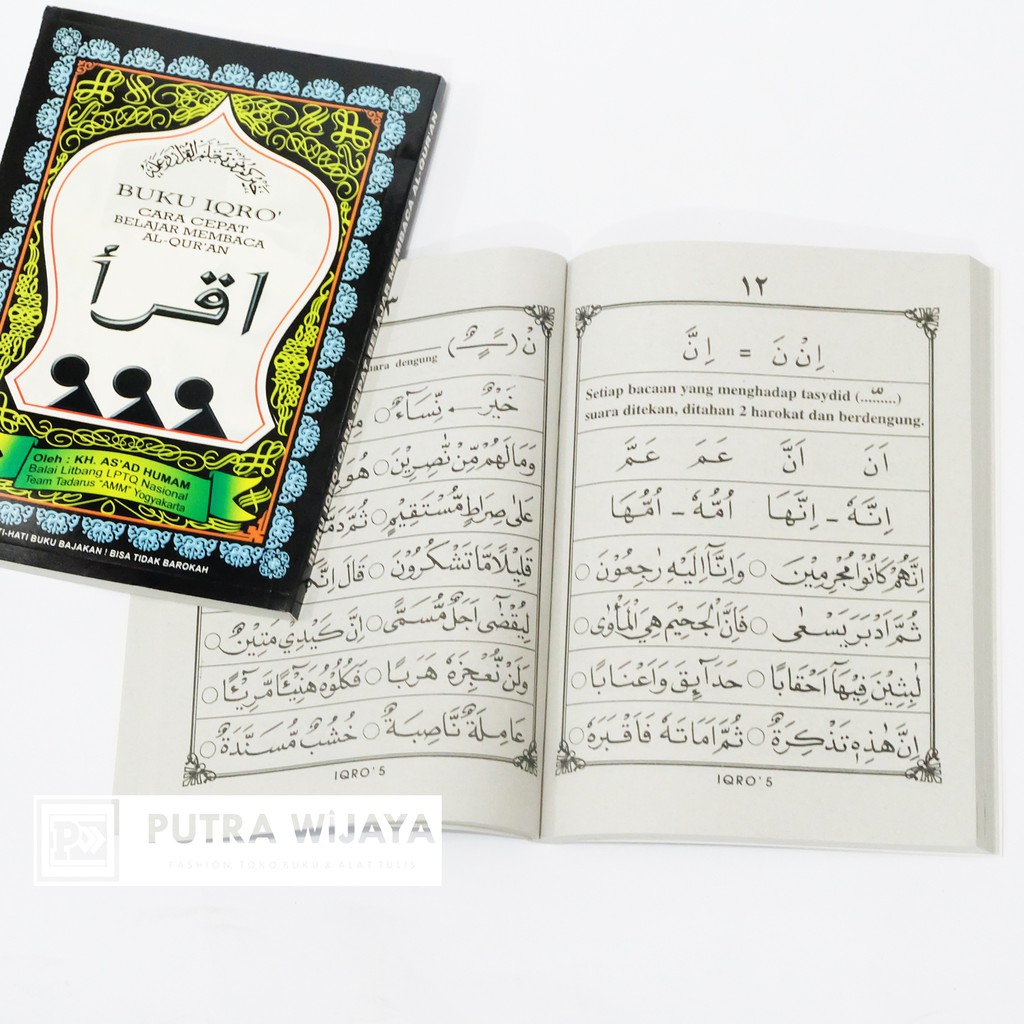 خيركم من تعلم القرآن وعلمه
BUKU IQRO'
CARA CEPAT
BELAJAR MEMBACA
AL-QUR'AN
اقرأ
Oleh : KH. AS'AD HUMAM
Balai Litbang LPTQ Nasional
Team Tadarus "AMM" Yogyakarta
TI-HATI BUKU BAJAKAN ! BISA TIDAK BAROKAH
١٢
اِنْ نَ = اِنَّ
Setiap bacaan yang menghadap tasydid (...ّ...)
suara ditekan, ditahan 2 harokat dan berdengung.
اَنَ اَنَّ عَمَ عَمَّ
اِنَّهٗ - اِنَّهَا اُمُّهٗ - اُمُّهَا
اِنَّهُمْ كَانُوْا مُجْرِمِيْنَ ○ وَاِنَّآ اِلَيْهِ رٰجِعُوْنَ ○
ثُمَّ اَدْبَرَ يَسْعٰى ○ فَاِنَّ الْجَحِيْمَ هِيَ الْمَأْوٰى ○
لٰبِثِيْنَ فِيْهَآ اَحْقَابًا ○ حَدَآئِقَ وَاَعْنَابًا ○
اِنَّ هٰذِهٖ تَذْكِرَةٌ ○ ثُمَّ اَمَاتَهٗ فَاَقْبَرَهٗ ○
IQRO' 5
نْ (ـًـٍـٌ)
dengung
خَيْرٌ ← نِّسَآءٌ ○
وَمَا لَهُمْ مِّنْ نّٰصِرِيْنَ ○
عَلٰى صِرَاطٍ مُّسْتَقِيْمٍ ○
قَلِيْلًا مَّا تَشْكُرُوْنَ ○ قَالَ
لِيُقْضٰٓى اَجَلٌ مُّسَمًّى ○ اِنَّ كَيْدِيْ مَتِيْنٌ ○
وَلَنْ نُّعْجِزَهٗ هَرَبًا ○ فَكُلُوْهُ هَنِيْٓئًا مَّرِيْٓئًا ○
عَامِلَةٌ نَّاصِبَةٌ ○ خُشُبٌ مُّسَنَّدَةٌ ○
IQRO' 5
PUTRA WIJAYA
FASHION, TOKO BUKU & ALAT TULIS